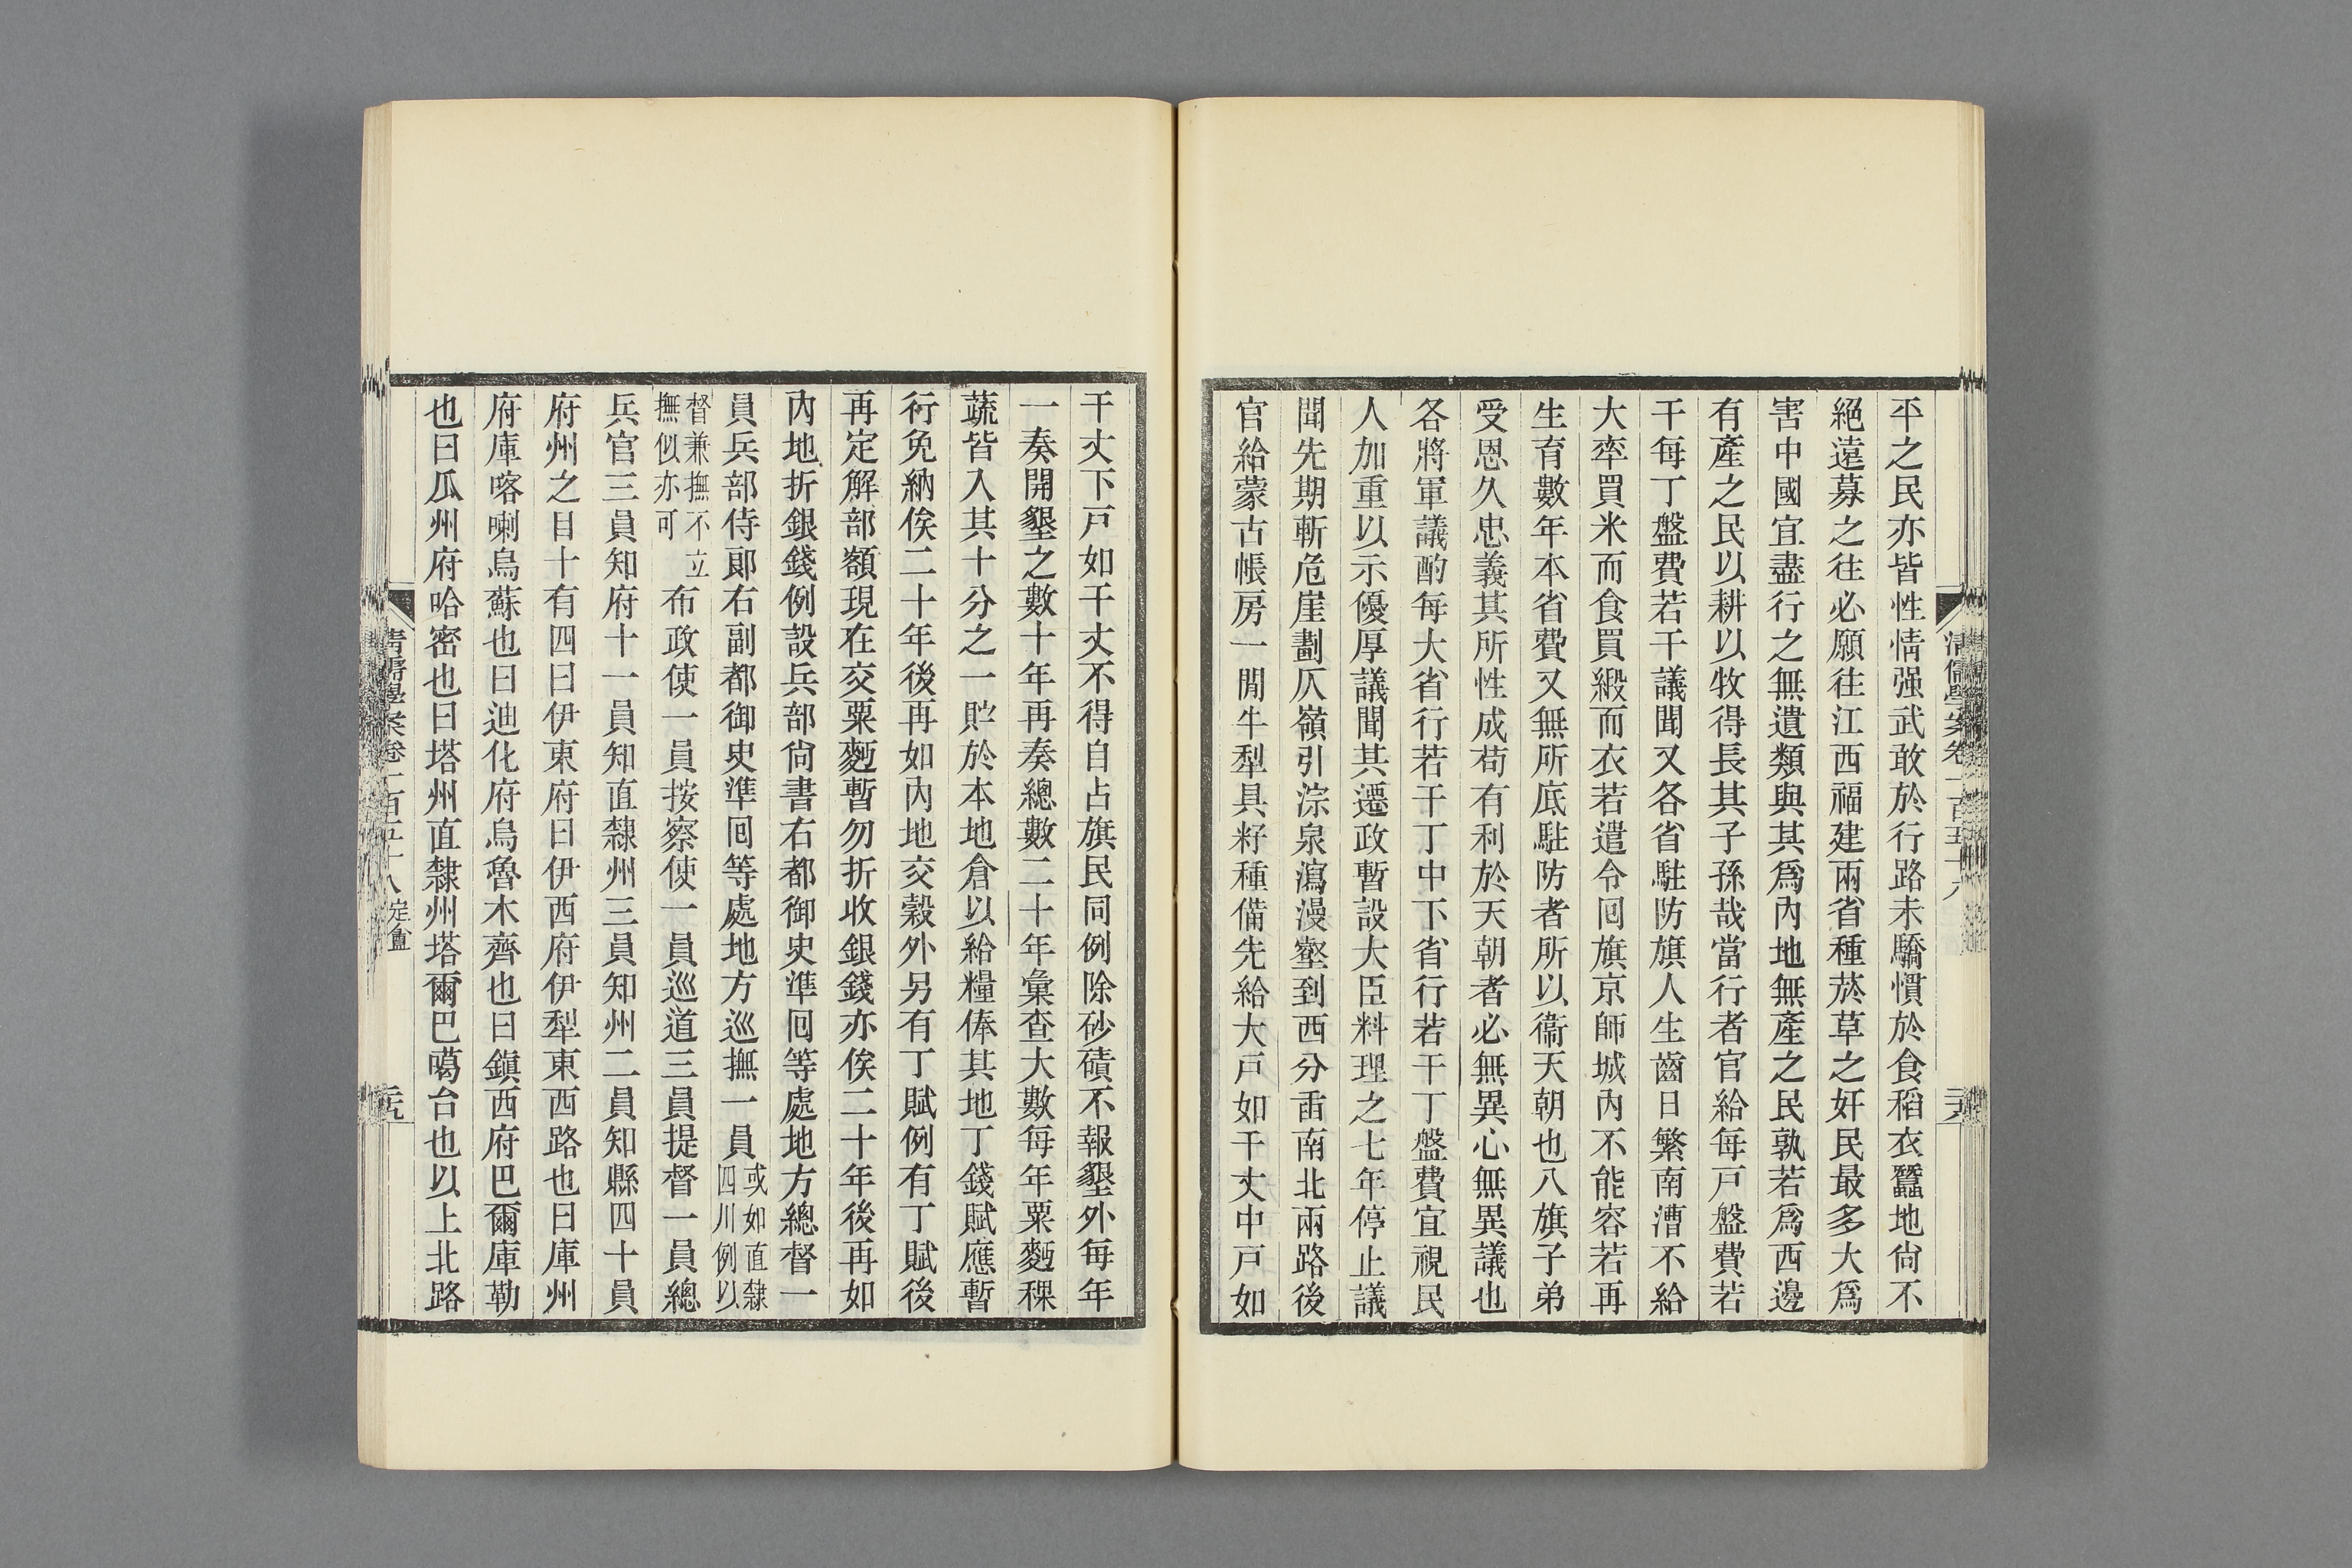 平之民亦皆性情强武敢於行路未驕慣於食稻衣蠶地尙不
絕遠募之往必願往江西福建兩省種菸草之奸民最多大爲
害中國宜盡行之無遺類與其爲內地無產之民孰若爲西邊
有產之民以耕以牧得長其子孫哉當行者官給每戸盤費若
干每丁盤費若干議聞又各省駐防旗人生齒日繁南漕不給
大率買米而食買緞而衣若遣令回旗京師城內不能容若再
生育數年本省費又無所底駐防者所以衞天朝也八旗子弟
受恩久忠義其所性成苟有利於天朝者必無異心無異議也
各將軍議酌每大省行若干丁中下省行若干丁盤費宜視民
人加重以示優厚議聞其遷政暫設大臣料理之七年停止議
聞先期斬危崖劃仄嶺引淙泉瀉漫壑到西分畱南北兩路後
官給蒙古帳房一閒牛犁具籽種備先給大戸如干丈中戸如
清儒學案卷一百五十八
干丈下戸如干丈不得自占旗民同例除砂磧不報墾外每年
一奏開墾之數十年再奏總數二十年彙查大數每年粟麪稞
蔬皆入其十分之一貯於本地倉以給糧俸其地丁錢賦應暫
行免納俟二十年後再如內地交穀外另有丁賦例有丁賦後
再定解部額現在交粟麪暫勿折收銀錢亦俟二十年後再如
內地折銀錢例設兵部尙書右都御史準回等處地方總督一
員兵部侍郞右副都御史準回等處地方巡撫一員或如直隸四川例以
督兼撫不立撫似亦可布政使一員按察使一員巡道三員提督一員總
兵官三員知府十一員知直隸州三員知州二員知縣四十員
府州之目十有四曰伊東府曰伊西府伊犁東西路也曰庫州
府庫喀喇烏蘇也曰迪化府烏魯木齊也曰鎭西府巴爾庫勒
也曰瓜州府哈密也曰塔州直隸州塔爾巴噶台也以上北路
清儒學案卷一百五十八 定盦